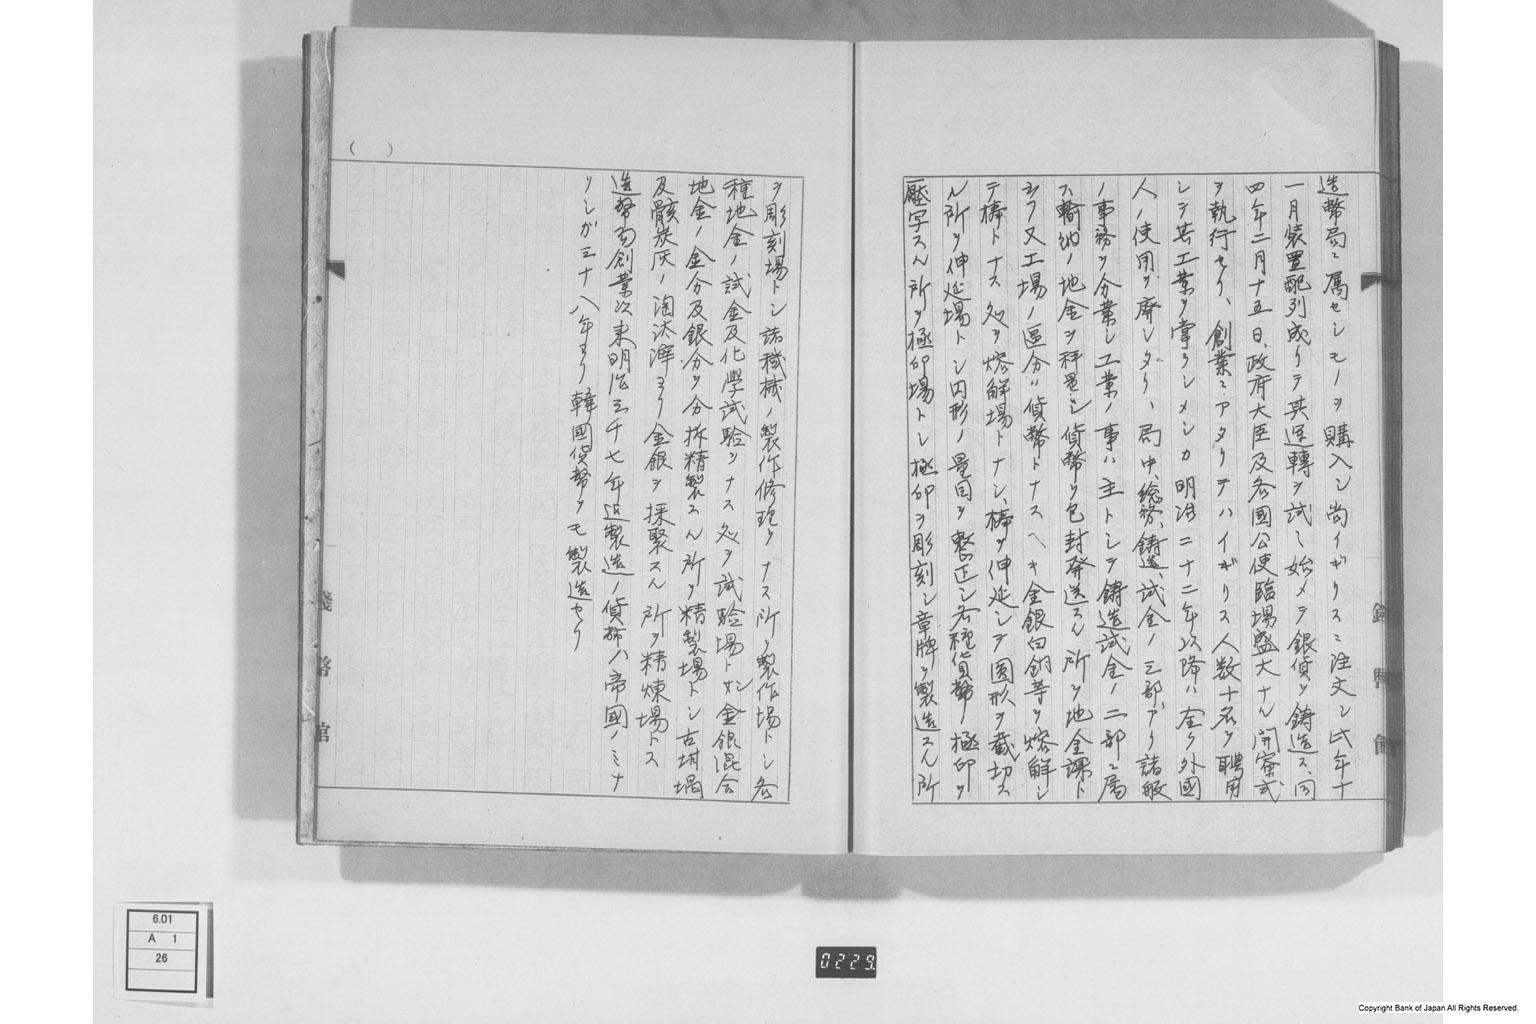 造幣局ニ属セシモノヲ購入シ尚イギリスニ注文シ此年十
一月装置配列成リテ其運轉ヲ試ミ始メテ銀貨ヲ鋳造ス、同
四年二月十五日、政府大臣及各國公使臨場盛大ナル開寮式
ヲ執行セリ、創業ニアタリテハイギリス人数十名ヲ聘用
シテ其工業ヲ掌ラシメシカ明治二十二年以降ハ全ク外國
人ノ使用ヲ廃シタリ、局中、総務、鋳造、試金ノ三部アリ諸般
ノ事務ヲ分業シ工業ノ事ハ主トシテ鋳造試金ノ二部ニ属
ス輸納ノ地金ヲ秤量シ貨幣ヲ包封発送スル所ヲ地金課ト
云フ又工場ノ區分ハ貨幣トナスヘキ金銀白銅等ヲ熔解シ
テ棒トナス処ヲ熔解場トナシ、棒ヲ伸延シテ圓形ヲ截切ス
ル所ヲ伸延場トシ円形ノ量目ヲ整正シ各種貨幣ノ極印ヲ
壓写スル所ヲ極印場トシ極印ヲ彫刻シ章牌ヲ製造スル所
ヲ彫刻場トシ諸機械ノ製作修理ヲナス所ヲ製作場トシ各
種地金ノ試金及化學試験ヲナス処ヲ試験場トシ金銀混合
地金ノ金分及銀分ヲ分析精製スル所ヲ精製場トシ古坩堝
及骸炭灰ノ淘汰滓ヨリ金銀ヲ採聚スル所ヲ精煉場トス
造幣局創業以来明治三十七年迄製造ノ貨幣ハ帝國ノミナ
リシガ三十八年ヨリ韓國貨幣ヲモ製造セリ
( )
錢幣館
6.01
A 1
26
0229
Copyright Bank of Japan All Rights Reserved.